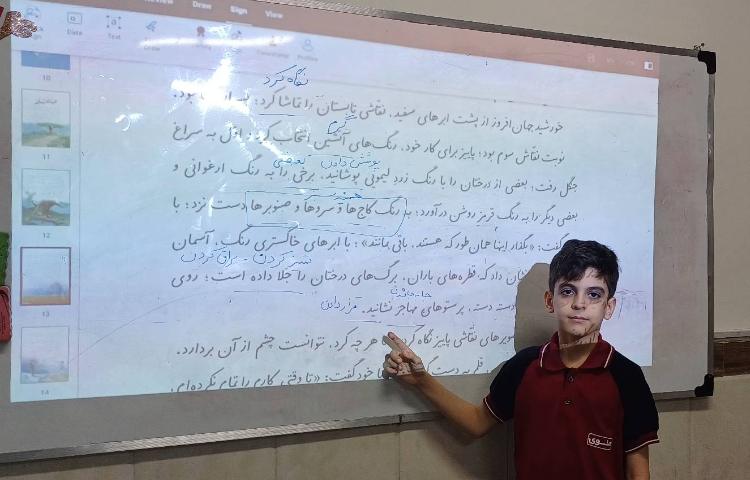 Review Draw Sign View
Date Text Draw
10
11
12
13
14
نگاه کرد
خورشید جهان افروز از پشت ابرهای سفید، نقاشی تابستان را تماشا کرد؛ بود.
گرم
نوبت نقاش سوم بود؛ پاییز برای کار خود، رنگ‌های آتشین انتخاب کرد؛ اول به سراغ
پوشش دادن بعضی
جنگل رفت؛ بعضی از درختان را با رنگ زرد لیمویی پوشانید. برخی را به رنگ ارغوانی و
بعضی دیگر را به رنگ قرمز روشن درآورد؛ به رنگ کاج‌ها و سروها و صنوبرها دست نزد؛ با
گفت: «بگذار اینها همان طور که هستند، باقی بمانند»؛ با ابرهای خاکستری رنگ، آسمان
براق کردن
داد که قطره‌های باران، برگ‌های درختان را جلا داده است؛ روی
دسته دسته، پرستوهای مهاجر نشانید. قرار دادن
نقاشی پاییز نگاه کرد هر چه کرد، نتوانست چشم از آن بردارد.
به دست خود گفت: «تا وقتی کارم را تمام نکرده‌ای
علوی